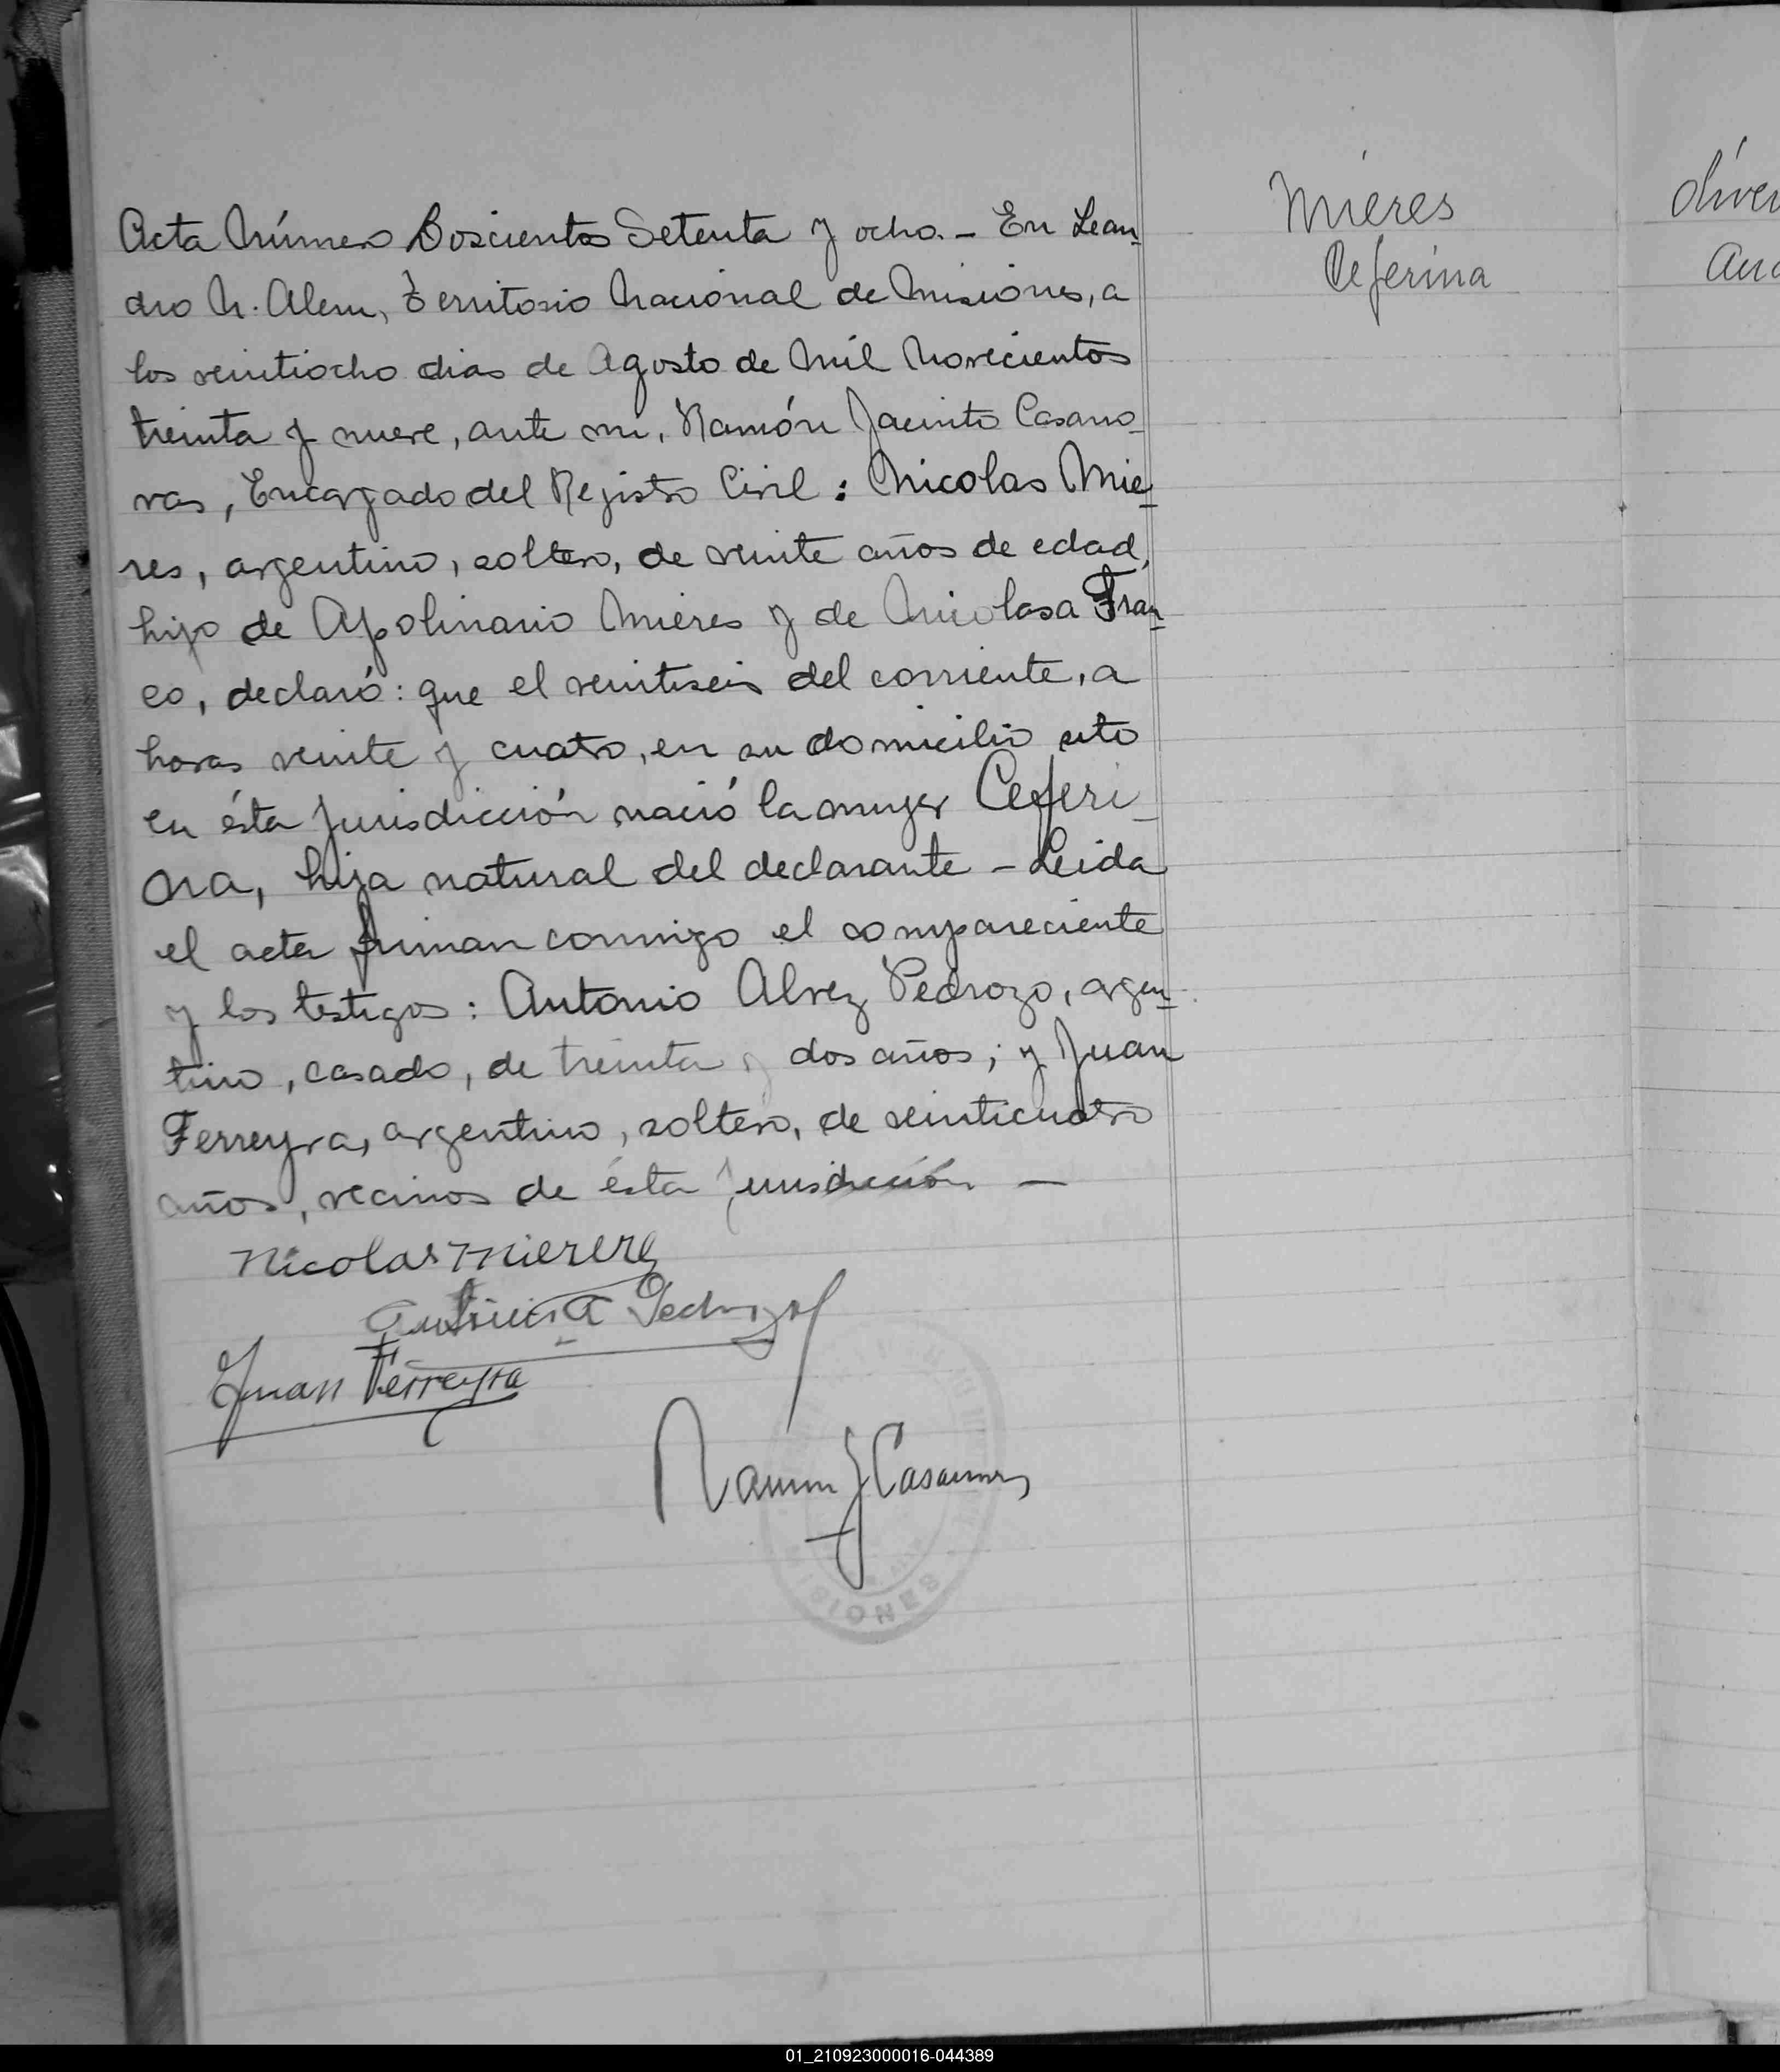 Acta Número Doscientos Setenta y ocho.- En Lean-
dro N. Alem, Territorio Nacional de Misiones, a
los veintiocho dias de Agosto de Mil Novecientos
treinta y nueve, ante mi, Ramón Jacinto Casano-
vas, Encargado del Registro Civil: Nicolas Mie-
res, argentino, soltero, de veinte años de edad,
hijo de Apolinario Mieres y de Nicolasa Fran-
co, declaró: que el veintiseis del corriente, a
horas veinte y cuatro, en su domicilio sito
en ésta jurisdicción nació la mujer Ceferi-
na, hija natural del declarante - Leida
el acta firman conmigo el compareciente
y los testigos: Antonio Alvez Pedrozo, argen-
tino, casado, de treinta y dos años; y Juan
Ferreyra, argentino, soltero, de veinticuatro
años, vecinos de ésta jurisdicción —
Nicolas Mierez
Antonio A Pedrozo
Juan Ferreyra
Ramon J Casanovas
MISIONES
Mieres
Ceferina
01_210923000016-044389